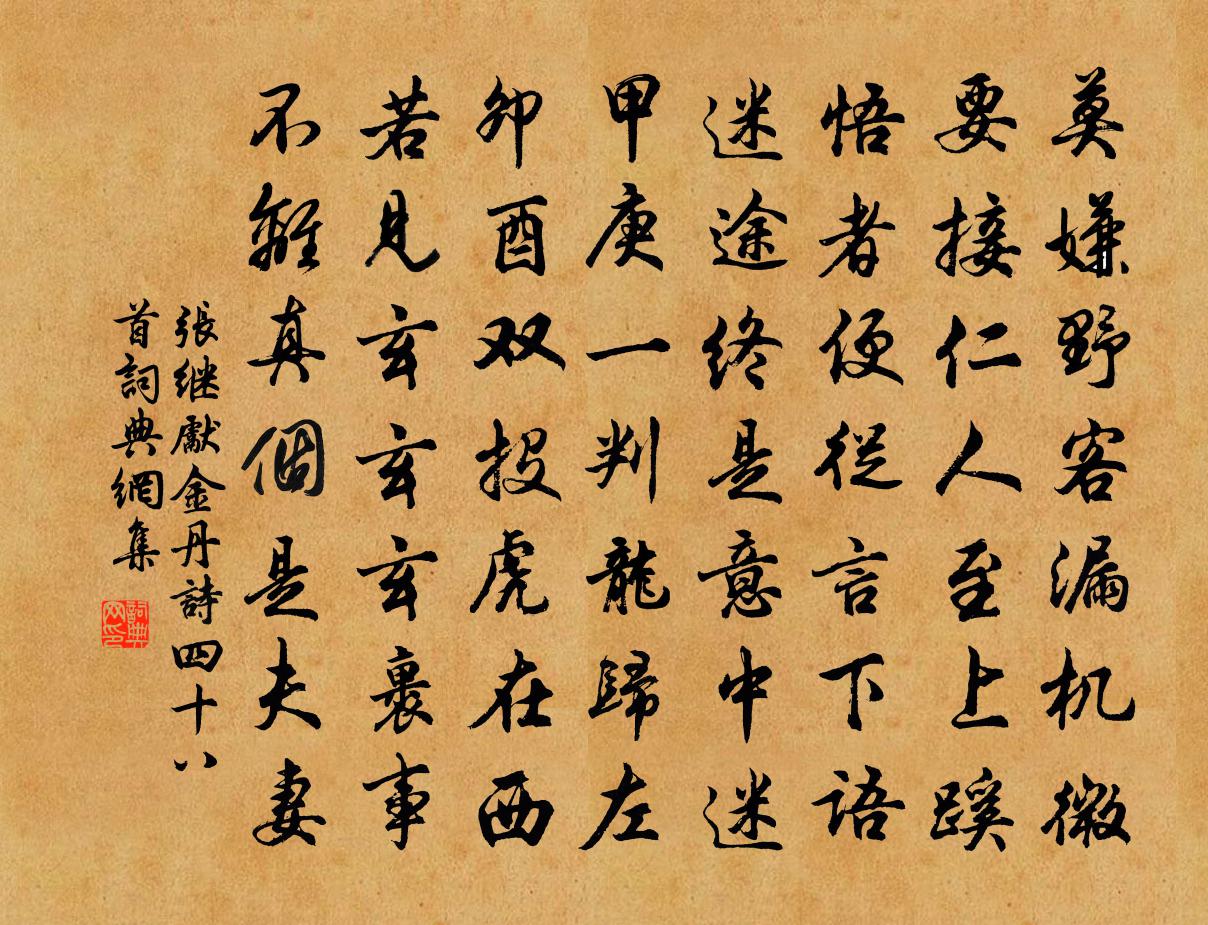 莫嫌野客漏机微
要接仁人至上蹊
悟者便從言下语
迷途终是意中迷
甲庚一判龍歸左
卯酉双投虎在西
若見玄玄玄裏事
不離真個是夫妻
張继獻金丹詩四十八
首詞典網集
詞典网印